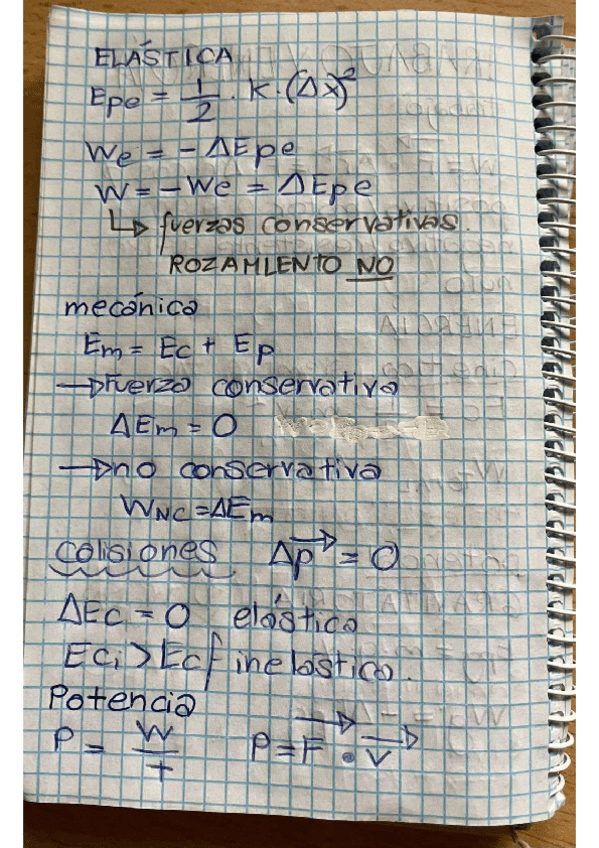 ELÁSTICA
Epe = 1/2 · K · (Δx)²
We = - ΔEpe
W = - We = ΔEpe
↳ fuerzas conservativas.
ROZAMIENTO NO
mecánica
Em = Ec + Ep
→ Fuerza conservativa
ΔEm = 0
→ no conservativa
WNC = ΔEm
colisiones Δp⃗ = 0
ΔEc = 0 elástica
Eci > Ecf inelástica.
Potencia
P = W/t P = F⃗ · v⃗